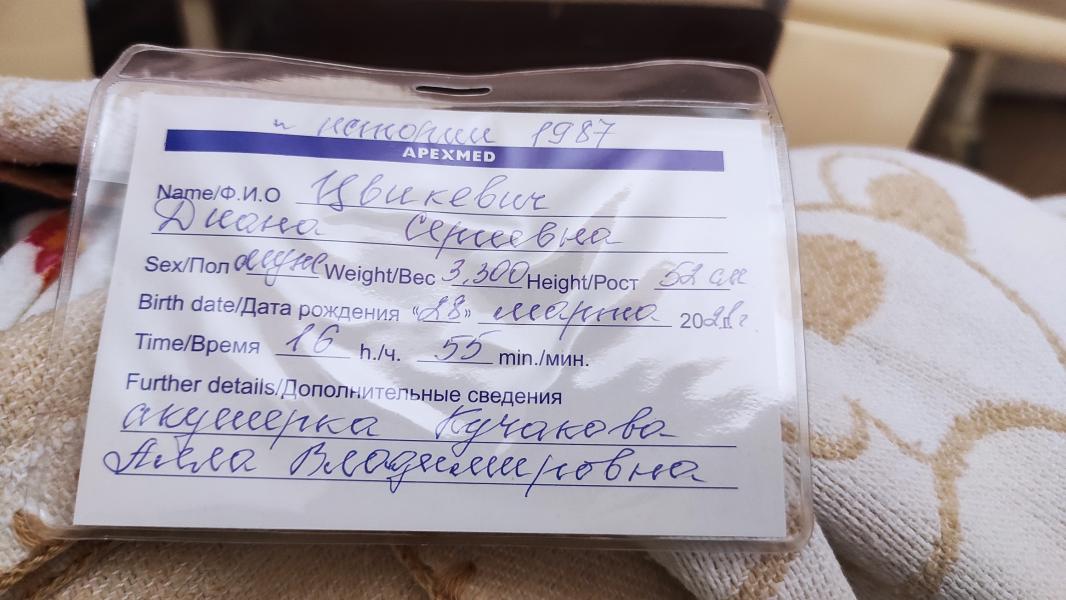 и истории 1987
APEXMED
Name/Ф.И.О Цвикевич
Диана Сергеевна
Sex/Пол муж Weight/Вес 3,300 Height/Рост 52 см
Birth date/Дата рождения «28» марта 2021г.
Time/Время 16 h./ч. 55 min./мин.
Further details/Дополнительные сведения
акушерка Кучакова
Алла Владимировна